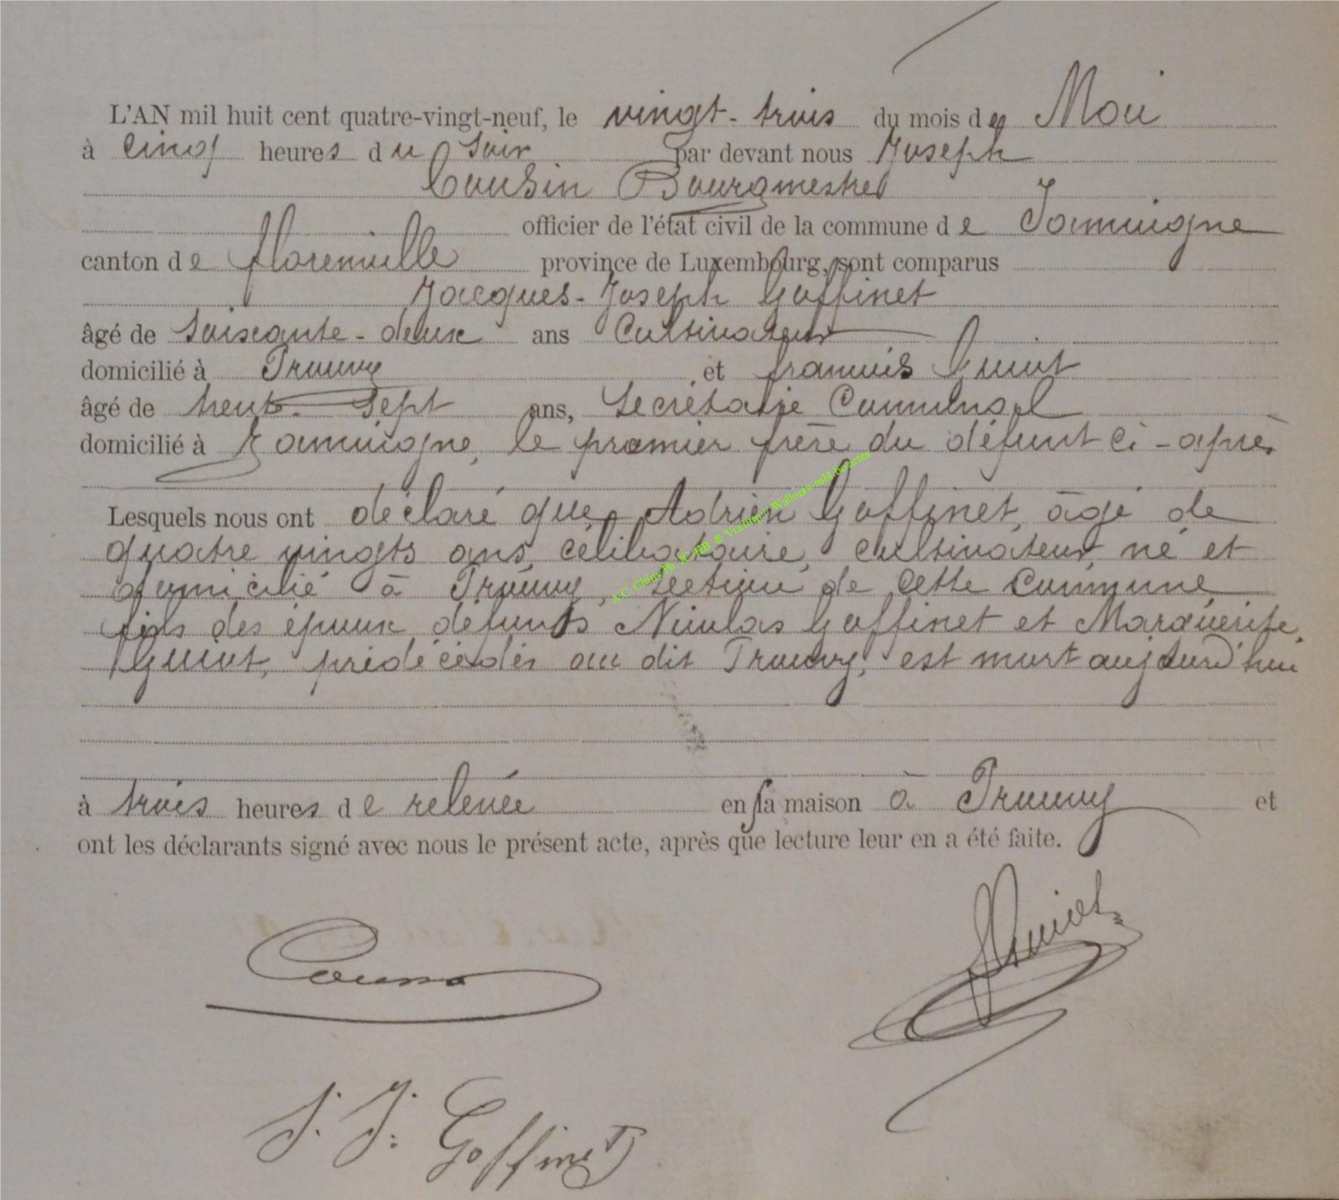 L'AN mil huit cent quatre-vingt-neuf, le vingt-trois du mois de Mai
à cinq heures du soir par devant nous Joseph
Cousin Bourgmestre
officier de l'état civil de la commune de Jamoigne
canton de florenville province de Luxembourg, sont comparus
Jacques-Joseph Goffinet
âgé de soixante-deux ans Cultivateur
domicilié à Prouvy et françois Guiot
âgé de trente-sept ans, Secrétaire Communal
domicilié à Jamoigne, le premier frère du défunt ci-après
Lesquels nous ont déclaré que Adrien Goffinet, âgé de
quatre vingts ans, célibataire, cultivateur né et
domicilié à Prouvy, section de cette commune
fils des époux défunts Nicolas Goffinet et Marguerite
Guiot, prédécédés au dit Prouvy, est mort aujourd'hui
à trois heures de relevée en sa maison à Prouvy et
ont les déclarants signé avec nous le présent acte, après que lecture leur en a été faite.
Cousin
F Guiot
J. J. Goffinet